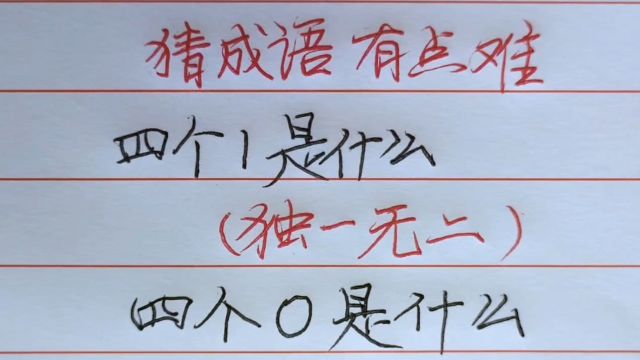 猜成语有点难
四个1是什么
(独一无二)
四个0是什么